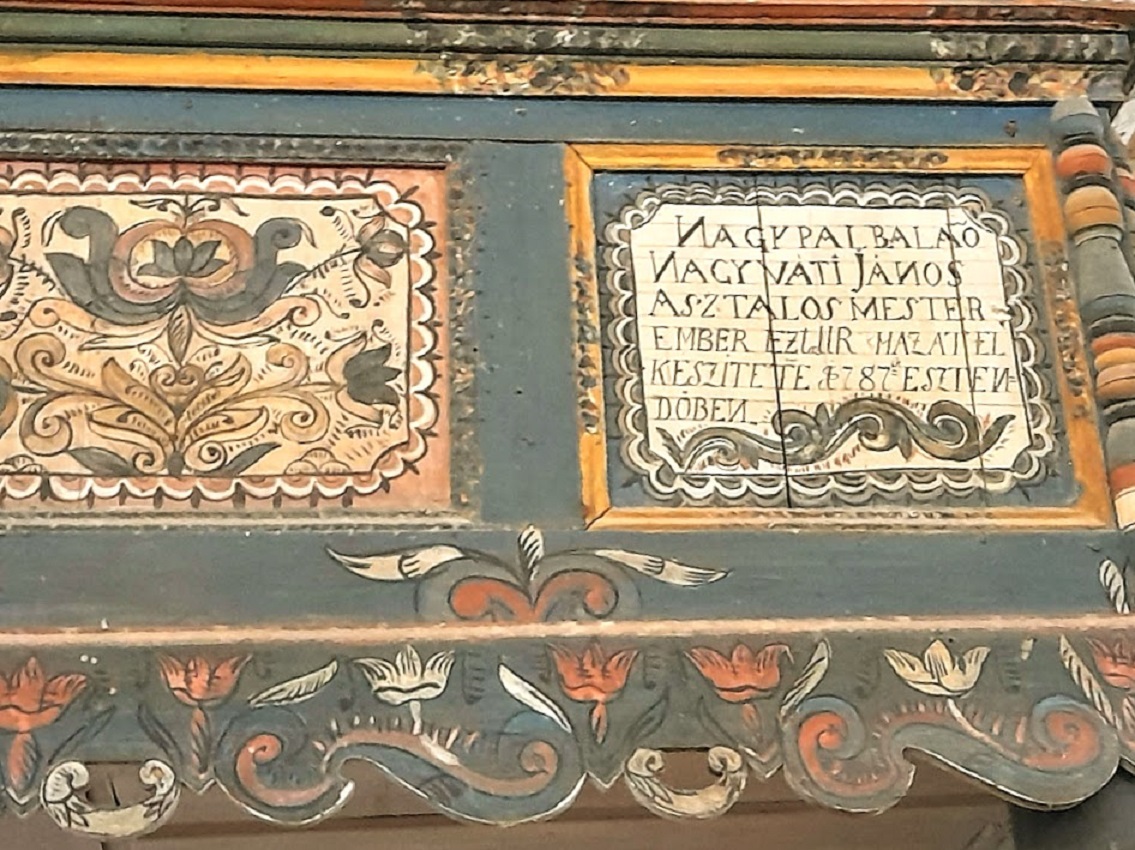 NAGYPALBALAÓ
NAGYVÁTI JÁNOS
ASZTALOS MESTER
EMBER EZ UR HAZÁT EL
KESZITETTE 1787 ESZTEN=
DŐBEN